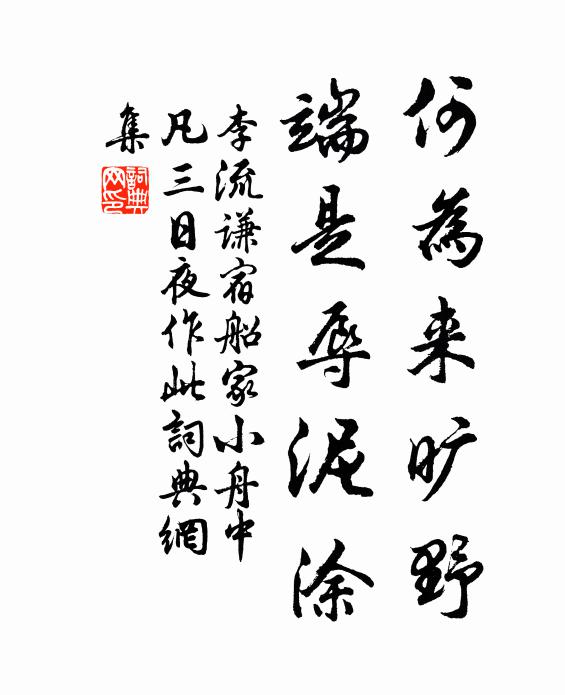 何為来旷野
端是辱泥涂
李流谦宿船家小舟中
凡三日夜作此詞典網
集
詞典
网印